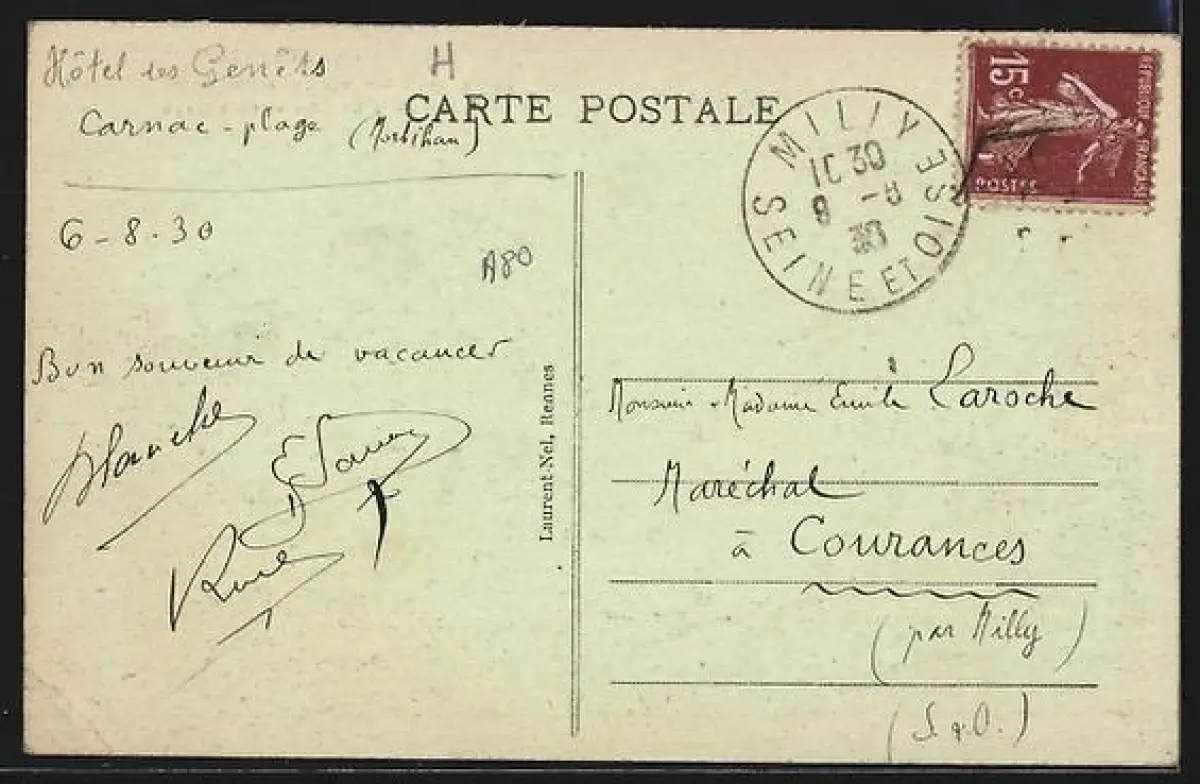 Hôtel des Genêts
H
Carnac-plage (Morbihan)
CARTE POSTALE
6-8-30
A80
Bon souvenir de vacances
Blanche
Laurent-Nel, Rennes
MILLY
SEINE ET OISE
8-8
30
15c
RÉPUBLIQUE FRANÇAISE
POSTES
Monsieur Madame Emile Laroche
Maréchal
à Courances
(par Milly)
(S & O.)